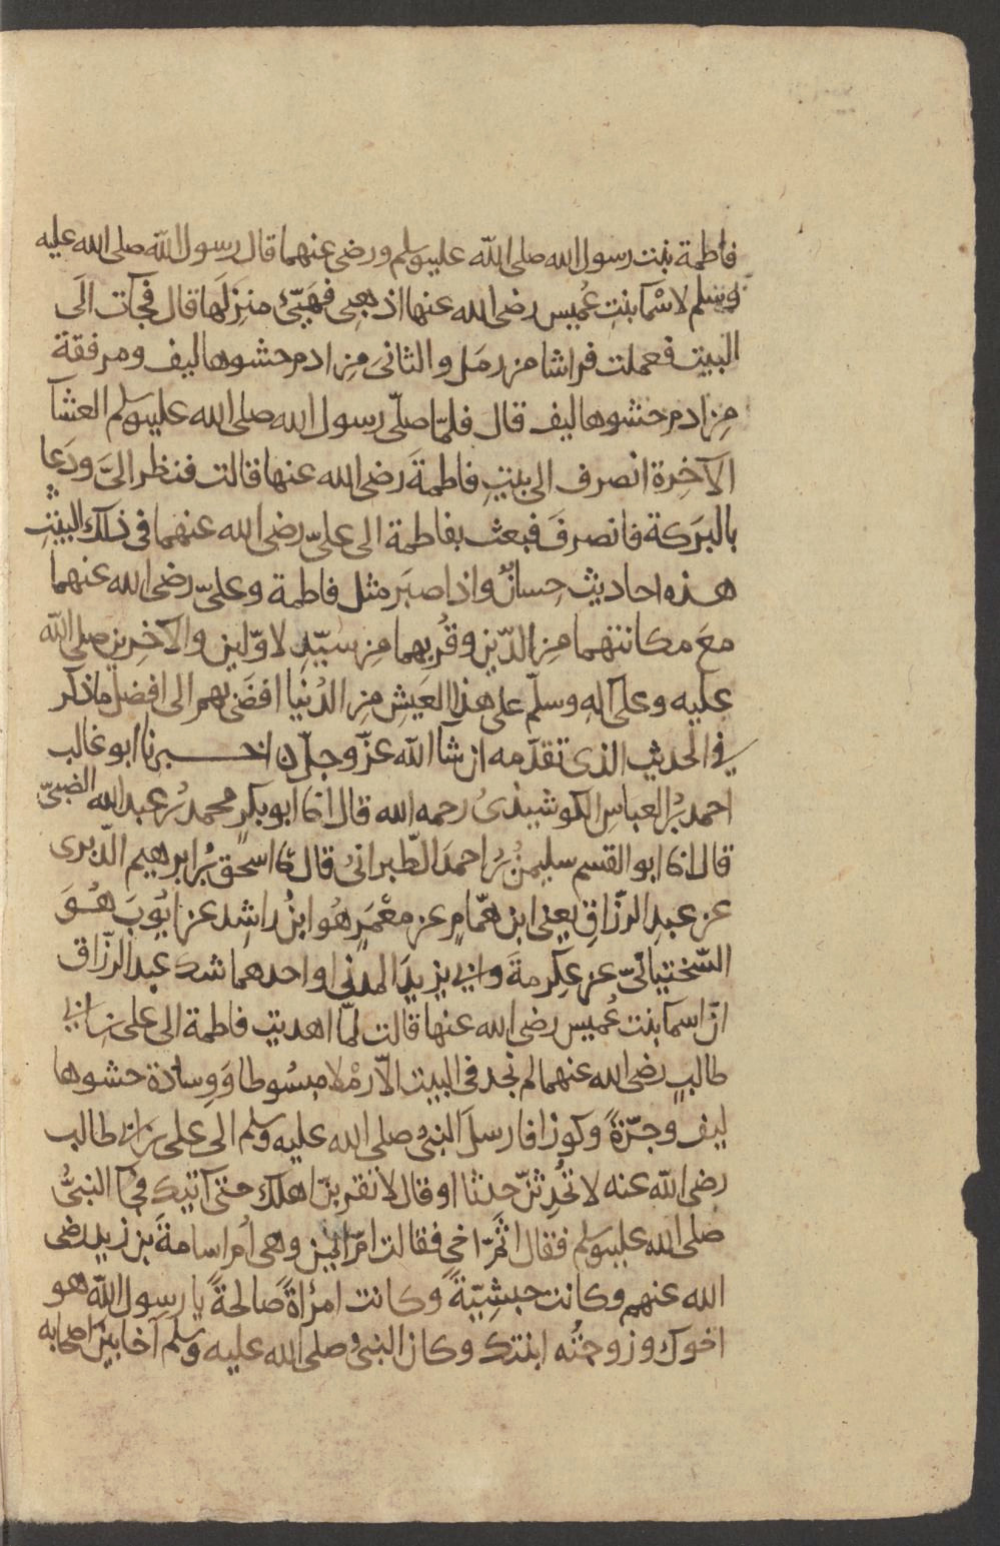 فاطمة بنت رسول الله صلى الله عليه وسلم ورضى عنهما قال رسول الله صلى الله عليه
وسلم لاسما بنت عُميس رضى الله عنها اذهبى فهيّئى منزلها قال فجآت الى
البيت فعملت فراشا من رمل والثانى من ادم حشوها ليف ومرفقة
من ادم حشوها ليف قال فلمّا صلّى رسول الله صلى الله عليه وسلم العشآ
الآخِرة انصرف الى بيتِ فاطمةَ رضى الله عنها قالت فنظر الىَّ ودَعا
بالبَركة فانصرفَ فبعث بفاطمة الى علىّ رضى الله عنهما فى ذلك البيتِ
هذه احاديث حِسانٌ واذا صبَر مثل فاطمة وعلىّ رضى الله عنهما
معَ مكانتهما مِن الدّين وقُربهما مِن سيّدِ الاوّلين والآخِرين صلى الله
عليه وعلى آلهِ وسلّم على هذا العَيشِ مِن الدُنيا افضَى بهم الى افضل ما ذكر
فى الحديث الذى تقدّمه ان شآ الله عزّ وجلّ اخـــبرنا ابو غالب
احمد بنُ العباسِ الكوشيذىُ رحمه الله قال انا ابو بكرٍ محمد بنُ عبد الله الضبىّ
قال انا ابو القسم سليمنُ بنُ احمدَ الطّبرانىُ قال ثا اسحق بنُ ابرهيم الدّبرى
عن عبدِ الرزّاقِ يعنى ابن همّامٍ عن معْمَرٍ هُوَ ابنُ راشِد عن ايّوبَ هُوَ
السّختيانىّ عن عِكرمةَ وابى يزيدَ المدنى او احدهما شك عبد الرزّاق
انّ اسما بنت عُميس رضى الله عنها قالت لمّا اهديت فاطمة الى على بن ابى
طالبٍ رضى الله عنهما لم نجد فى البيت الّا رمْلا مبسُوطا وَوِسادة حشوها
ليف وجرّةً وكوزا فارسلَ النبىُ صلى الله عليه وسلم الى على بن ابى طالب
رضى الله عنه لا تُحدِثنّ حدثا او قال لا تقربنّ اهلك حتى آتيك فجآ النبىُّ
صلى الله عليه وسلم فقال اثَمَّ اخى فقالت امّ ايمن وهى اُم اسامةَ بن زيد رضى
الله عنهم وكانت حبشِيّةً وكانت امرأةً صَالحةً يا رسول الله هو
اخوك وزوجتُه ابنتك وكان النبىُ صلى الله عليه وسلم آخا بين اصحابه